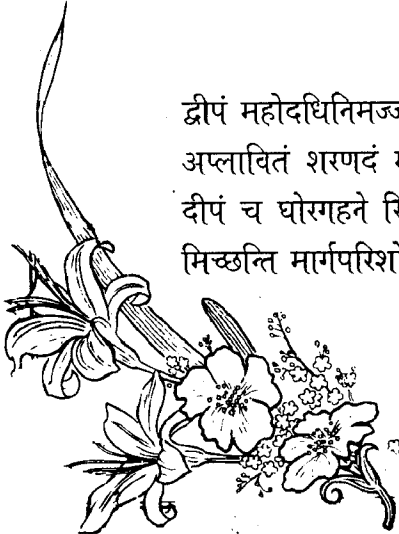 द्वीपं महोदधिनिमज्ज
अप्लावितं शरणदं
दीपं च घोरगहने
मिच्छन्ति मार्गपरिशो